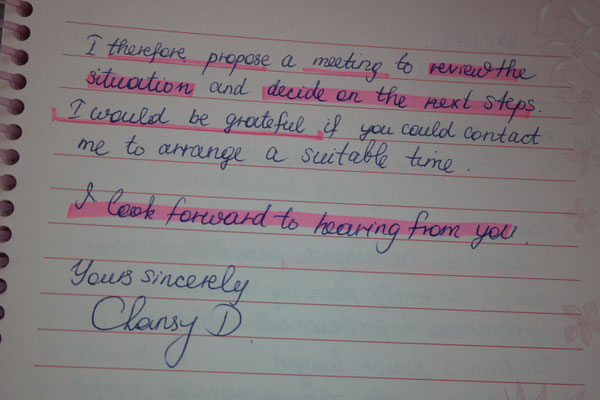 I therefore propose a meeting to review the
situation and decide on the next steps.
I would be grateful if you could contact
me to arrange a suitable time.
I look forward to hearing from you.
Yours sincerely
Chansy D